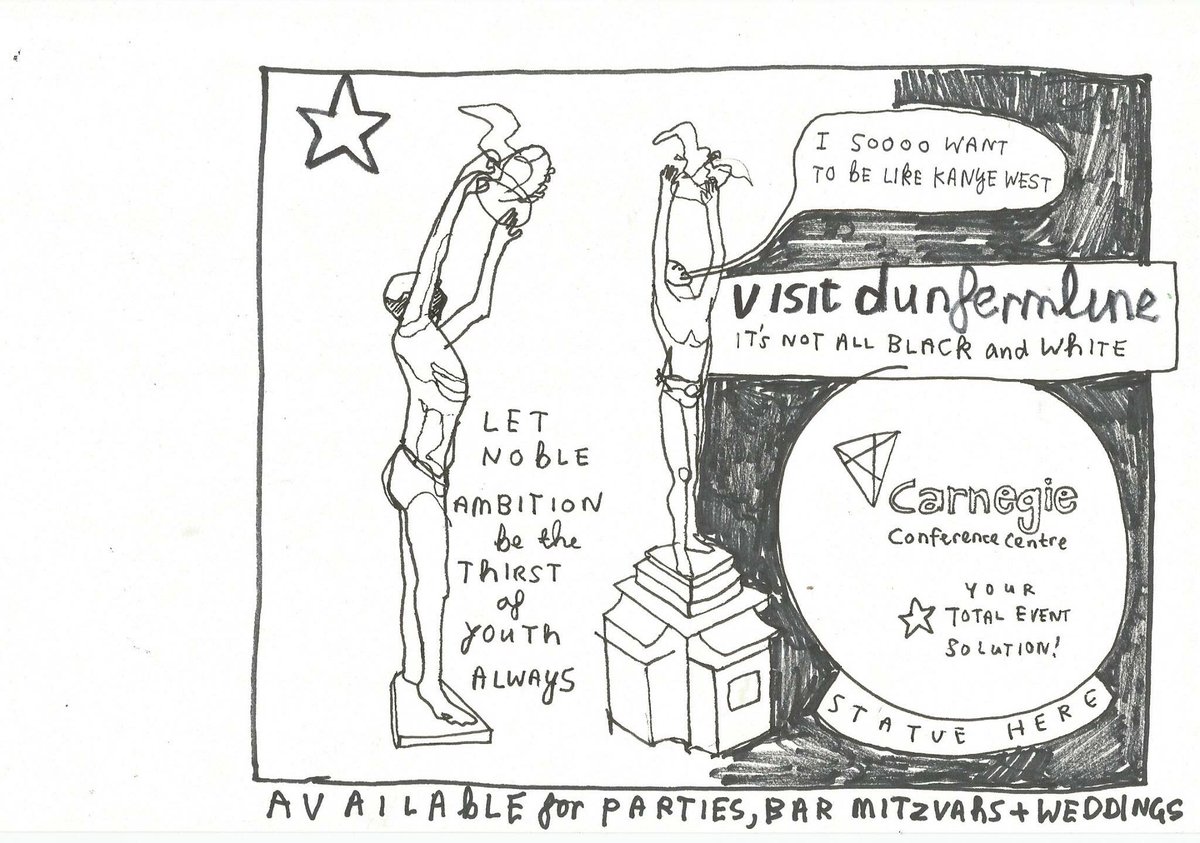 I SOOOO WANT
TO BE LIKE KANYE WEST
VISIT dunfermline
IT'S NOT ALL BLACK and WHITE
LET
NOBLE
AMBITION
be the
THIRST
of
YOUTH
ALWAYS
Carnegie
Conference Centre
YOUR
TOTAL EVENT
SOLUTION!
STATUE HERE
AVAILABLE for PARTIES, BAR MITZVAHS + WEDDINGS